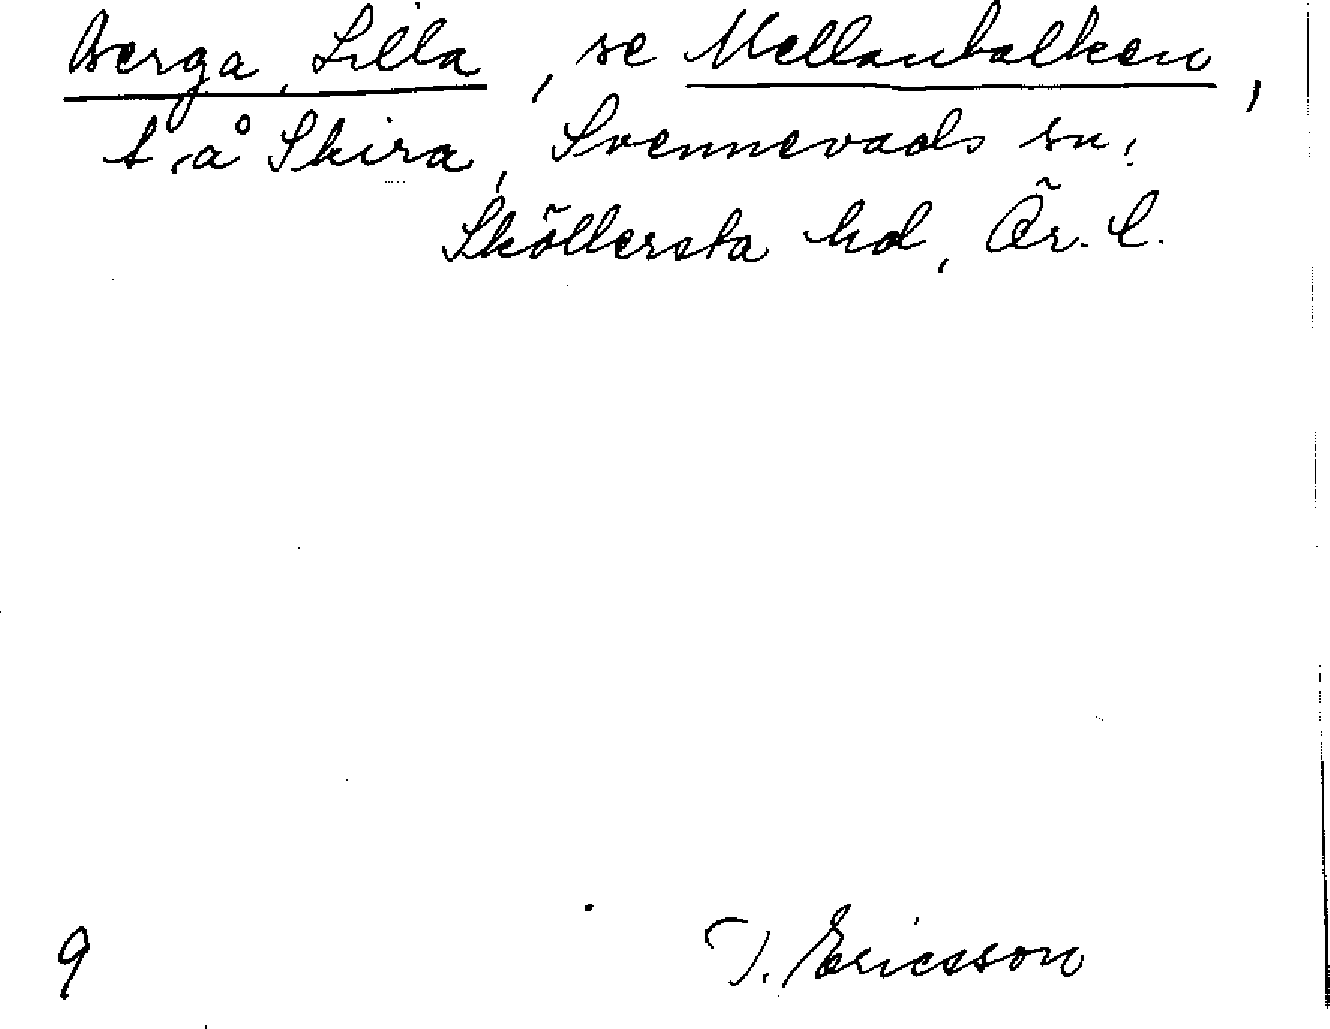 Berga, Lilla, se Mellanbalken,
t. å Skira, Svennevads sn,
Sköllersta hd, Ör. l.
9
T. Ericsson